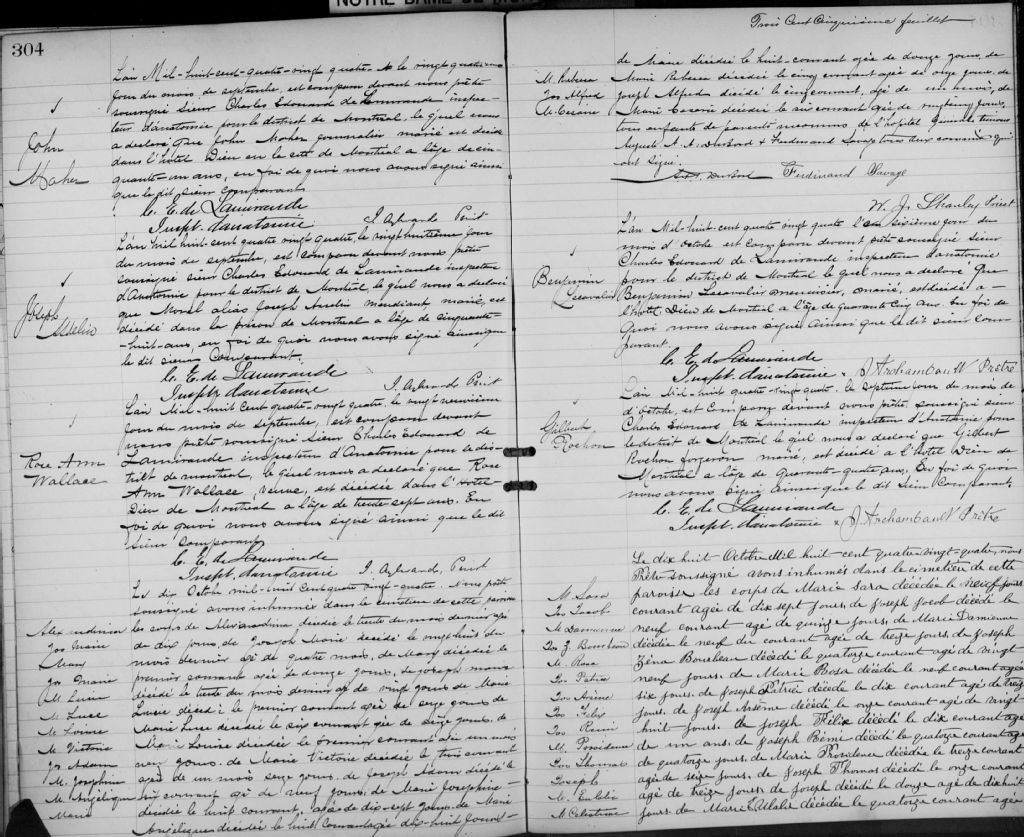 NOTRE DAME DE
304
L'an Mil-huit-cent-quatre-vingt quatre le vingt quatrième
jour du mois de septembre, est comparu devant nous prêtre
soussigné sieur Charles Edouard de Lamirande inspec-
teur d'anatomie pour le district de Montreal, le quel nous
a declaré que John Maher journalier marié est décédé
dans l'hotel Dieu en la cité de Montreal a l'âge de cin-
quante-un ans, en foi de quoi nous avons signé ainsi
que le dit sieur comparant
1
John
Maher
C. E. de Lamirande
Inspt. d'anatomie
L'an mil huit-cent quatre vingt quatre, le vingt huitième jour
du mois de septembre, est comparu devant nous prêtre
soussigné sieur Charles Edouard de Lamirande inspecteur
d'Anatomie pour le district de Montréal, le quel nous a declaré
que Morel alias Joseph Aurelin mendiant marié, est
décédé dans la prison de Montreal a l'âge de cinquante-
huit-ans, en foi de quoi nous avons signé ainsi que
le dit sieur Comparant.
1
Joseph
C. E. de Lamirande
Inspt. d'anatomie
L'an Mil-huit Cent-quatre-vingt quatre, le vingt neuvième
jour du mois de septembre, est comparu devant
nous prêtre soussigné Sieur Charles Edouard de
Lamirande inspecteur d'Anatomie pour le dis-
trict de montreal, le quel nous a declaré que Rose
Ann Wallace, veuve, est décédée dans l'Hotel
Dieu de Montreal a l'âge de trente sept ans. En
foi de quoi nous avons signé ainsi que le dit
sieur comparant
1
Rose Ann
Wallace
C. E. de Lamirande
Inspt. d'anatomie
Le dix Octobre mil-huit cent quatre vingt-quatre. Nous prêtre
soussigné avons inhumés dans le cimetière de cette paroisse
les corps de Alexandrina décédée le trente du mois dernier agé
de dix jours, de Joseph Marie décédé le
mois dernier agé de quatre mois, de Mary décédée le
premier courant agée de douze jours, de joseph marie
décédé le trente du mois dernier agé de vingt jours de Marie
Lucie décédée le premier courant agée de seize jours de
Marie Luce décédée le six courant agée de seize jours, de
Marie Louise décédée le premier courant agée un mois
jours, de Marie Victorie décédée le trois courant
agée de un mois seize jours, de Joseph Adam décédé le
huit courant agé de neuf jours, de Marie Josephine
décédée le huit courant, agée de dix-sept jours, de Marie
Angélique décédée le huit courant agée dix-huit jours-
Jos Marie
Mary
Jos Marie
M Lucie
M Luce
M Louise
M Victorie
Jos Adam
M. Josephine
M. Angélique
Marie
Trois Cent Cinquième feuillet
de Marie décédée le huit-courant agée de douze jours, de
Marie Rebecca décédée le cinq courant agée de onze jours, de
joseph Alfred décédé le cinq courant, agé de un mois, de
Marie Césarie décédée le six courant agée de vingt cinq jours,
tous enfants de parents inconnus de l'hopital
Auguste A. A. Dubord & Ferdinand Savage tous deux
ont signé.
M. Rebecca
Jos Alfred
M. Césarie
Ferdinand Savage
W. J. Shanley Priest
L'an Mil-huit-cent quatre vingt quatre le sixième jour du
mois d'octobre est Comparu devant prêtre soussigné sieur
Charles Edouard de Lamirande inspecteur d'anatomie
pour le district de Montreal le quel nous a declaré que
Benjamin Lecavalier menuisier, marié, est décédé a
l'hotel Dieu de Montreal a l'âge de quarante cinq ans. En foi de
quoi nous avons signé ainsi que le dit sieur Com-
parant.
1
Benjamin
Lecavalier
C. E. de Lamirande
Inspt. d'anatomie J Archambault Prêtre
L'an Mil-huit-cent quatre-vingt quatre. le septieme jour du mois de
d'octobre, est Comparu devant nous prêtre soussigné sieur
Charles Edouard de Lamirande inspecteur d'Anatomie pour
le district de Montreal le quel nous a declaré que Gilbert
Rochon forgeron marié, est décédé a l'hotel Dieu de
Montréal a l'âge de quarante-quatre ans. En foi de quoi
nous avons signé ainsi que le dit sieur Comparant.
Gilbert
Rochon
C. E. de Lamirande
Inspt. d'anatomie J Archambault Prêtre
Le dix huit Octobre Mil huit-cent quatre-vingt-quatre, nous
Prêtre-Soussigné avons inhumés dans le cimetière de cette
paroisse les corps de Marie Sara décédée le neuf jours
courant agée de dix sept jours, de Joseph Jacob décédé le
neuf courant agé de quinze jours, de Marie Damienne
décédée le neuf du courant agée de treize jours, de Joseph
Zéna Bourbeau décédé le quatorze courant agé de vingt
neuf jours, de Marie Rosa décédée le neuf courant agée
six jours, de Joseph Patrice décédé le dix courant agé de treize
jours, de Joseph Arsène décédé le onze courant agé de vingt
huit jours, de joseph Félix décédé le dix courant agé
de un ans, de Joseph Rémi décédé le quatorze courant agé
de quatorze jours, de Marie Providence décédée le treize courant
agée de seize jours, de Joseph Thomas décédé le onze courant
agé de treize jours, de Joseph décédé le douze agé de dix huit
jours, de Marie Eulalie décédée le quatorze courant agée
M Sara
Jos Jacob
M Damienne
Jos Z. Bourbeau
M. Rosa
Jos Patrice
Jos Arsène
Jos Felix
Jos Remi
M. Providence
Jos Thomas
Joseph
M. Eulalie
M Celestine